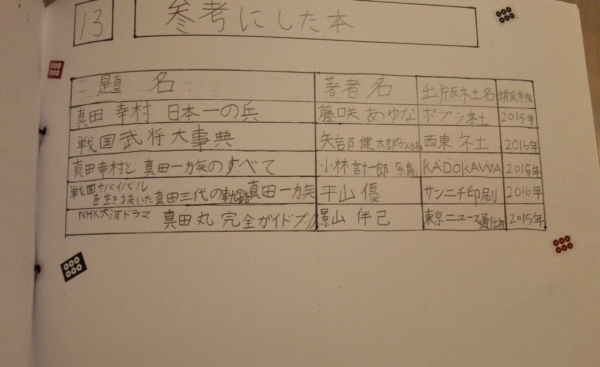 13 参考にした本
題名 著者名 出版社名 出版年
真田幸村 日本一の兵 藤咲あゆな ポプラ社 2015年
戦国武将大事典 矢部健太郎 西東社 2016年
真田幸村と真田一族のすべて 小林計一郎 KADOKAWA 2015年
戦国サバイバルを生き抜いた真田三代の軌跡 真田一族 平山優 サンニチ印刷 2016年
NHK大河ドラマ 真田丸 完全ガイドブック 景山伴己 東京ニュース通信社 2015年